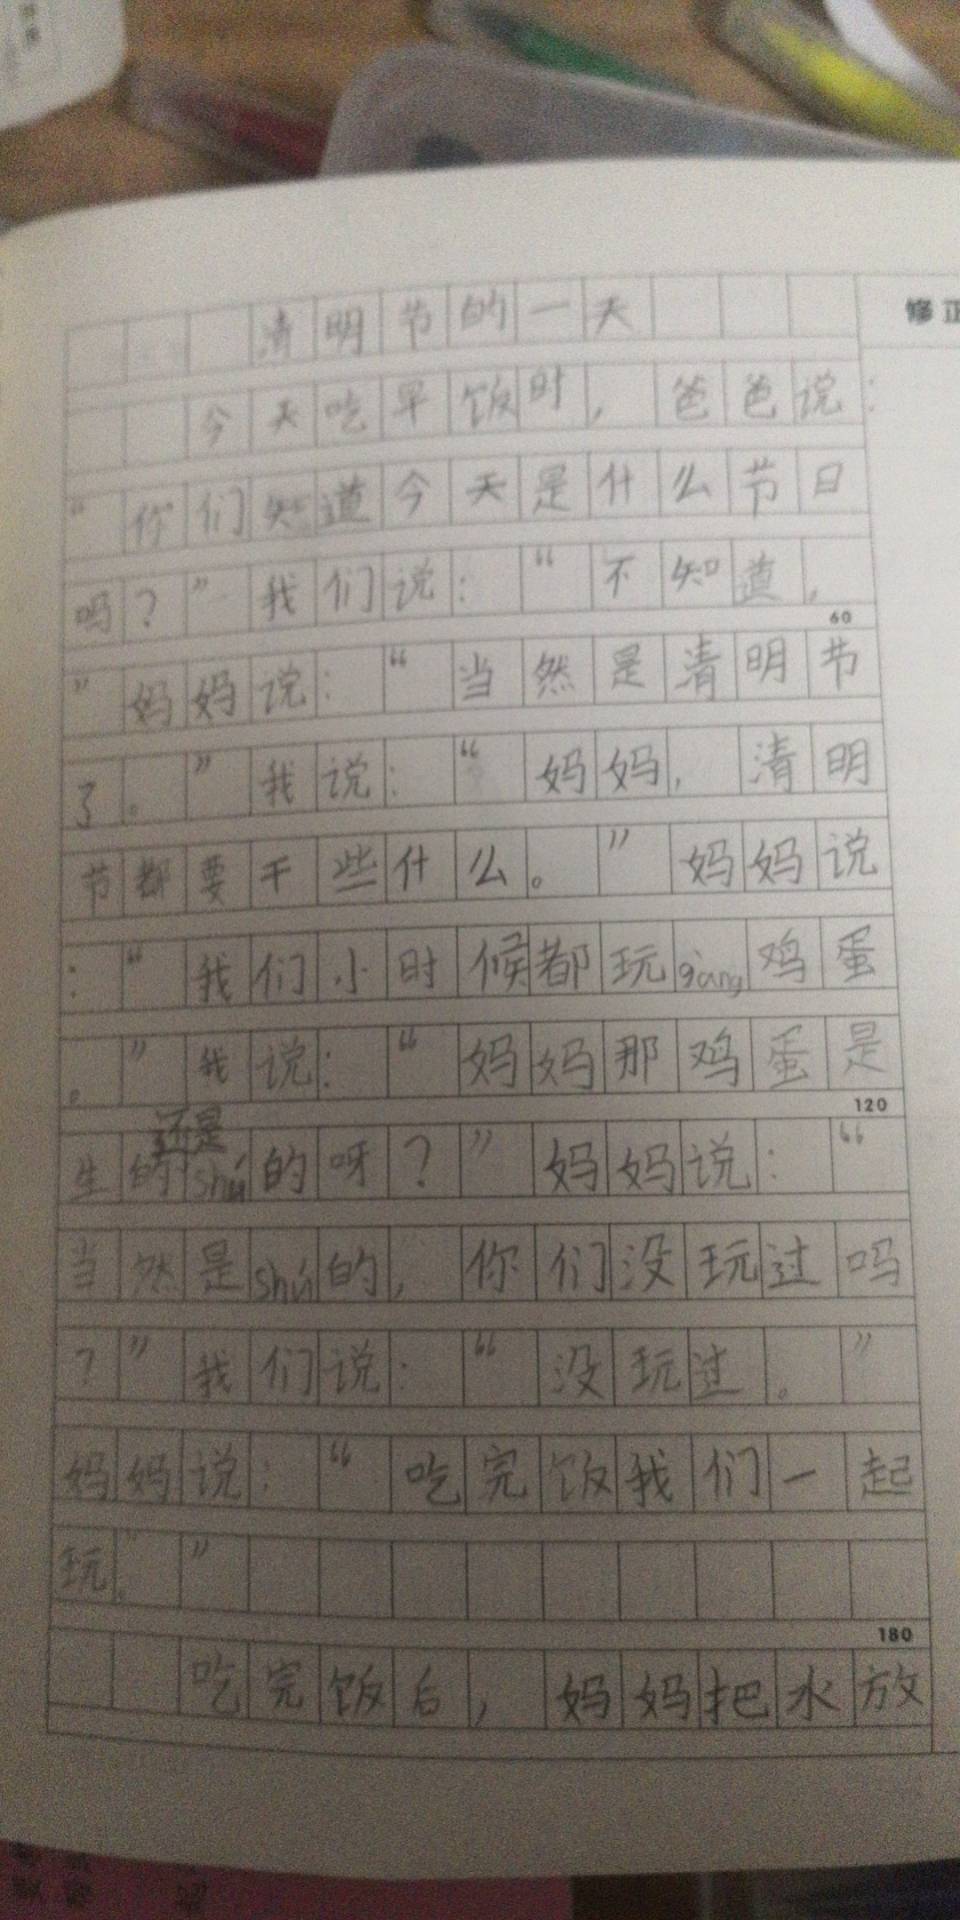 清明节的一天
修正
今天吃早饭时，爸爸说：
“你们知道今天是什么节日
吗？”我们说：“不知道，
60
”妈妈说：“当然是清明节
了。”我说：“妈妈，清明
节都要干些什么。”妈妈说
：“我们小时候都玩gàng鸡蛋
。”我说：“妈妈那鸡蛋是
120
还是
生的shú的呀？”妈妈说：“
当然是shú的，你们没玩过吗
？”我们说：“没玩过。”
妈妈说：“吃完饭我们一起
玩。”
180
吃完饭后，妈妈把水放